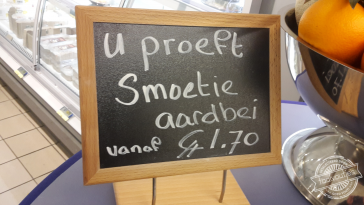 U proeft
Smoetie
aardbei
vanaf € 1.70